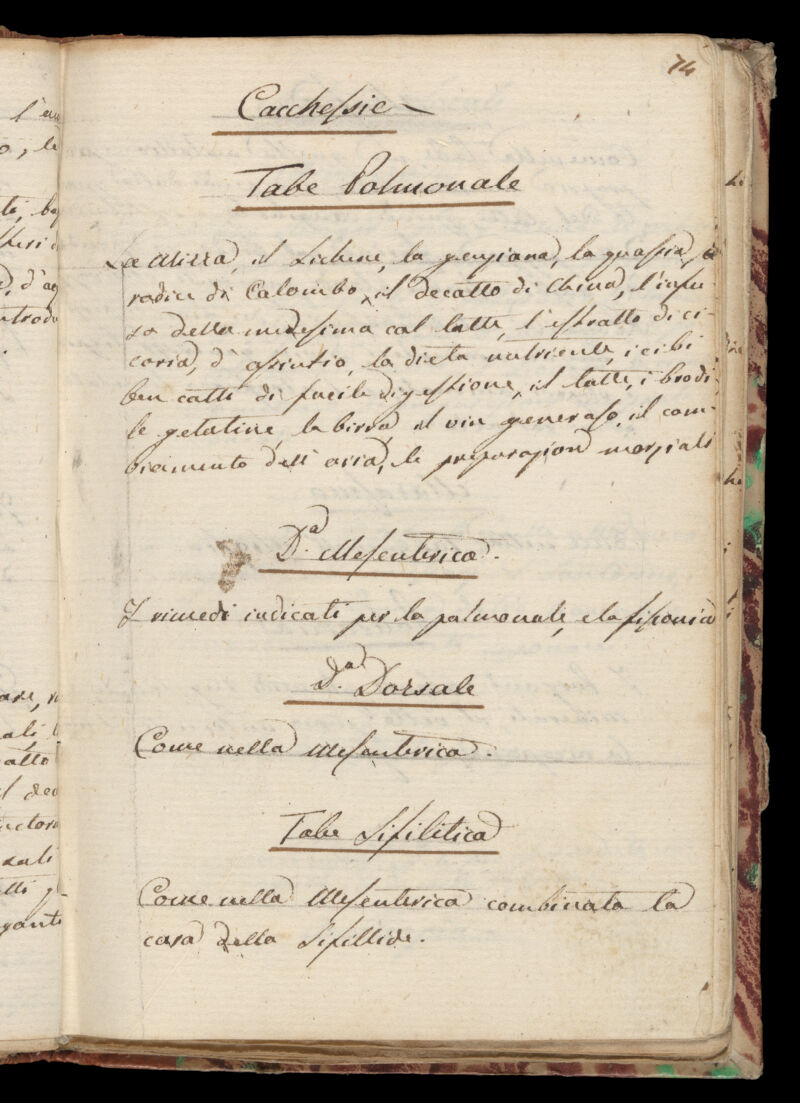 74
Cacchessie
Tabe Polmonale
La Mirra, il Lichene, la genziana, la quassia, la
radice di Calombo, il decotto di China, l'infu
so della medesima col latte, l'estratto di ci
coria, d'assintio, la dieta nutriente, i cibi
ben cotti di facile digestione, il latte, i brodi,
le gelatine, la birra, il vin generoso, il cam
biamento dell'aria, le preparazioni marziali
Da. Mesenterica.
I rimedi indicati per la polmonale, e la
Da. Dorsale
Come nella Mesenterica.
Tabe Sifilitica
Come nella Mesenterica combinata la
cura della Sifillide.